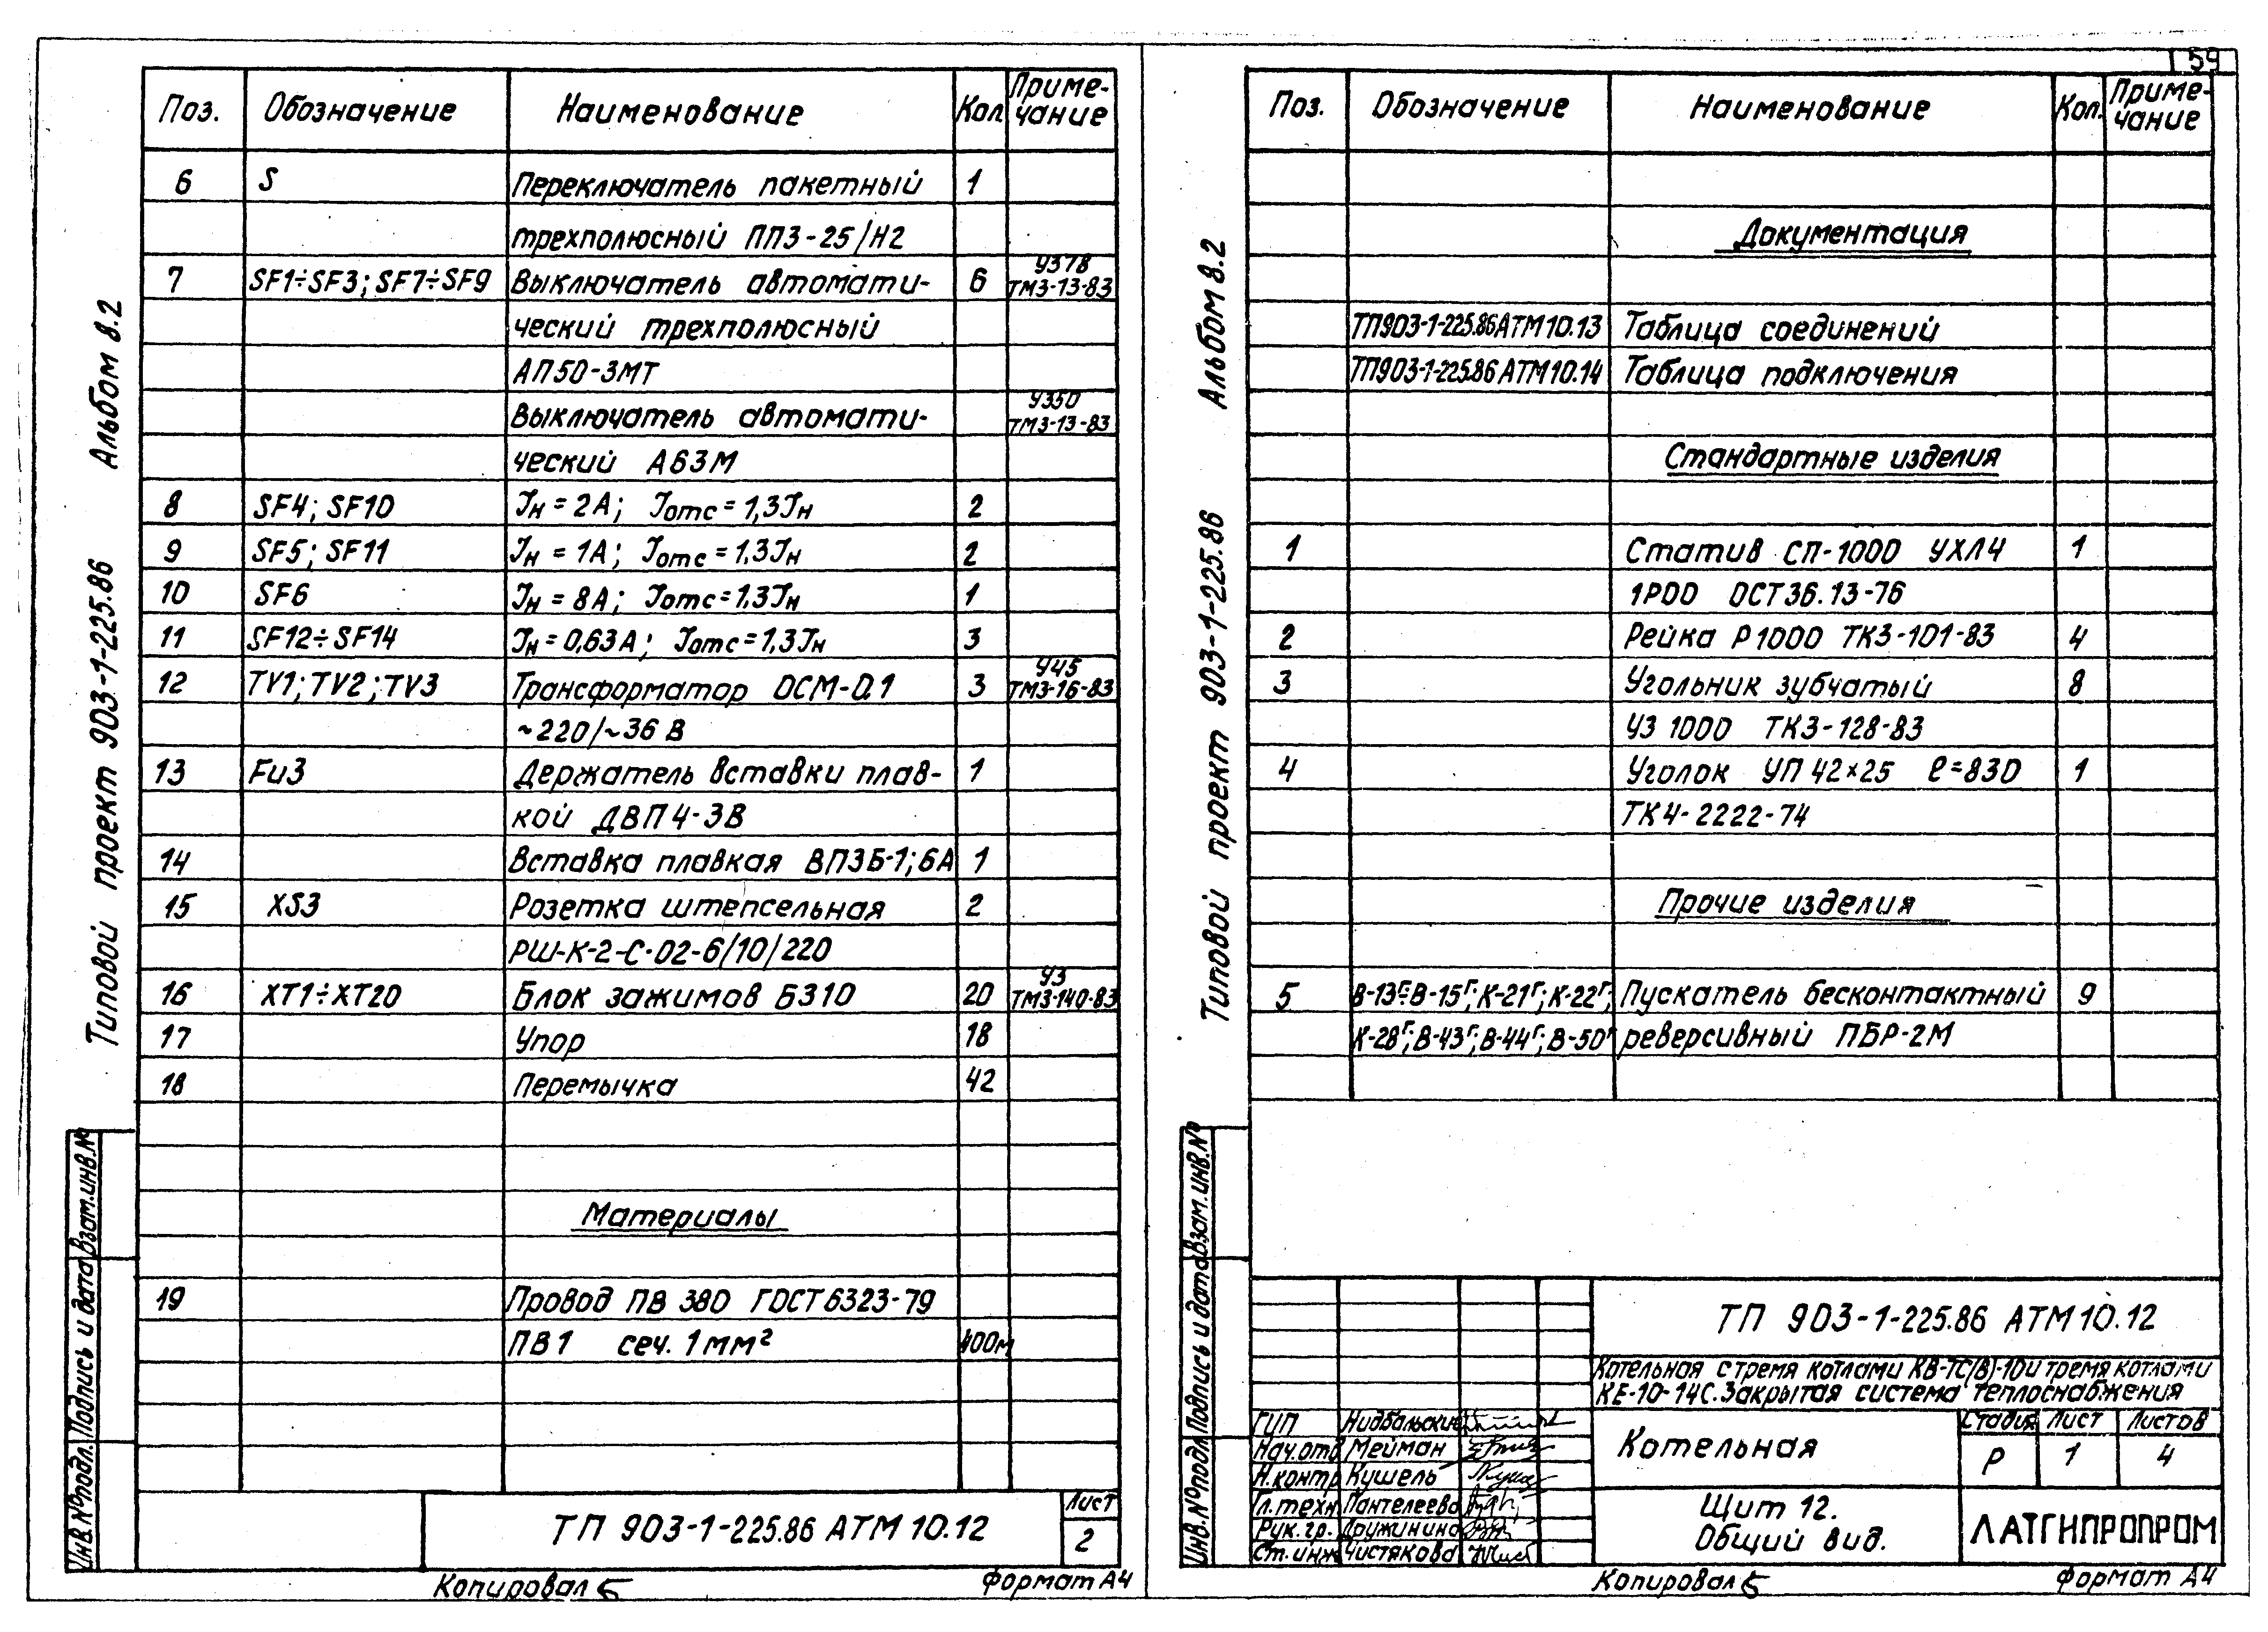 59
Альбом 8.2
Типовой проект 903-1-225.86
Поз. Обозначение Наименование Кол. Приме-
чание
6 S Переключатель пакетный 1
трехполюсный ПП3-25/Н2
7 SF1÷SF3; SF7÷SF9 Выключатель автомати- 6 У378
ТМ3-13-83
ческий трехполюсный
АП50-3МТ
Выключатель автомати- У350
ТМ3-13-83
ческий А63М
8 SF4; SF10 Iн = 2А; Iотс = 1,3Iн 2
9 SF5; SF11 Iн = 1А; Iотс = 1,3Iн 2
10 SF6 Iн = 8А; Iотс = 1,3Iн 1
11 SF12÷SF14 Iн = 0,63А; Iотс = 1,3Iн 3
12 TV1; TV2; TV3 Трансформатор ОСМ-0,1 3 У45
ТМ3-16-83
~220/~36 В
13 Fu3 Держатель вставки плав- 1
кой ДВП4-3В
14 Вставка плавкая ВП3Б-1; 6А 1
15 XS3 Розетка штепсельная 2
РШ-К-2-С-02-6/10/220
16 XT1÷XT20 Блок зажимов Б310 20 У3
ТМ3-140-83
17 Упор 18
18 Перемычка 42
Материалы
19 Провод ПВ 380 ГОСТ 6323-79
ПВ1 сеч. 1 мм² 400м
Инв.№подл. Подпись и дата Взам.инв.№
ТП 903-1-225.86 АТМ10.12
Лист
2
Копировал
Формат А4
Альбом 8.2
Типовой проект 903-1-225.86
Поз. Обозначение Наименование Кол. Приме-
чание
Документация
ТП903-1-225.86 АТМ10.13 Таблица соединений
ТП903-1-225.86 АТМ10.14 Таблица подключения
Стандартные изделия
1 Статив СП-1000 УХЛ4 1
1Р00 ОСТ36.13-76
2 Рейка Р1000 ТК3-101-83 4
3 Угольник зубчатый 8
УЗ 1000 ТК3-128-83
4 Уголок УП 42×25 ℓ=830 1
ТК4-2222-74
Прочие изделия
5 В-13г÷В-15г; К-21г; К-22г; Пускатель бесконтактный 9
К-28г; В-43г; В-44г; В-50г реверсивный ПБР-2М
Инв.№подл. Подпись и дата Взам.инв.№
ТП 903-1-225.86 АТМ10.12
Котельная с тремя котлами КВ-ТС(В)-10 и тремя котлами
КЕ-10-14С. Закрытая система теплоснабжения
ГИП
Нач.отд Мейман
Н.контр Кушель
Гл.техн. Пантелеева
Рук.гр. Дружинина
Ст.инж Чистякова
Котельная
Стадия Лист Листов
Р 1 4
Щит 12.
Общий вид.
ЛАТГИПРОПРОМ
Копировал
Формат А4